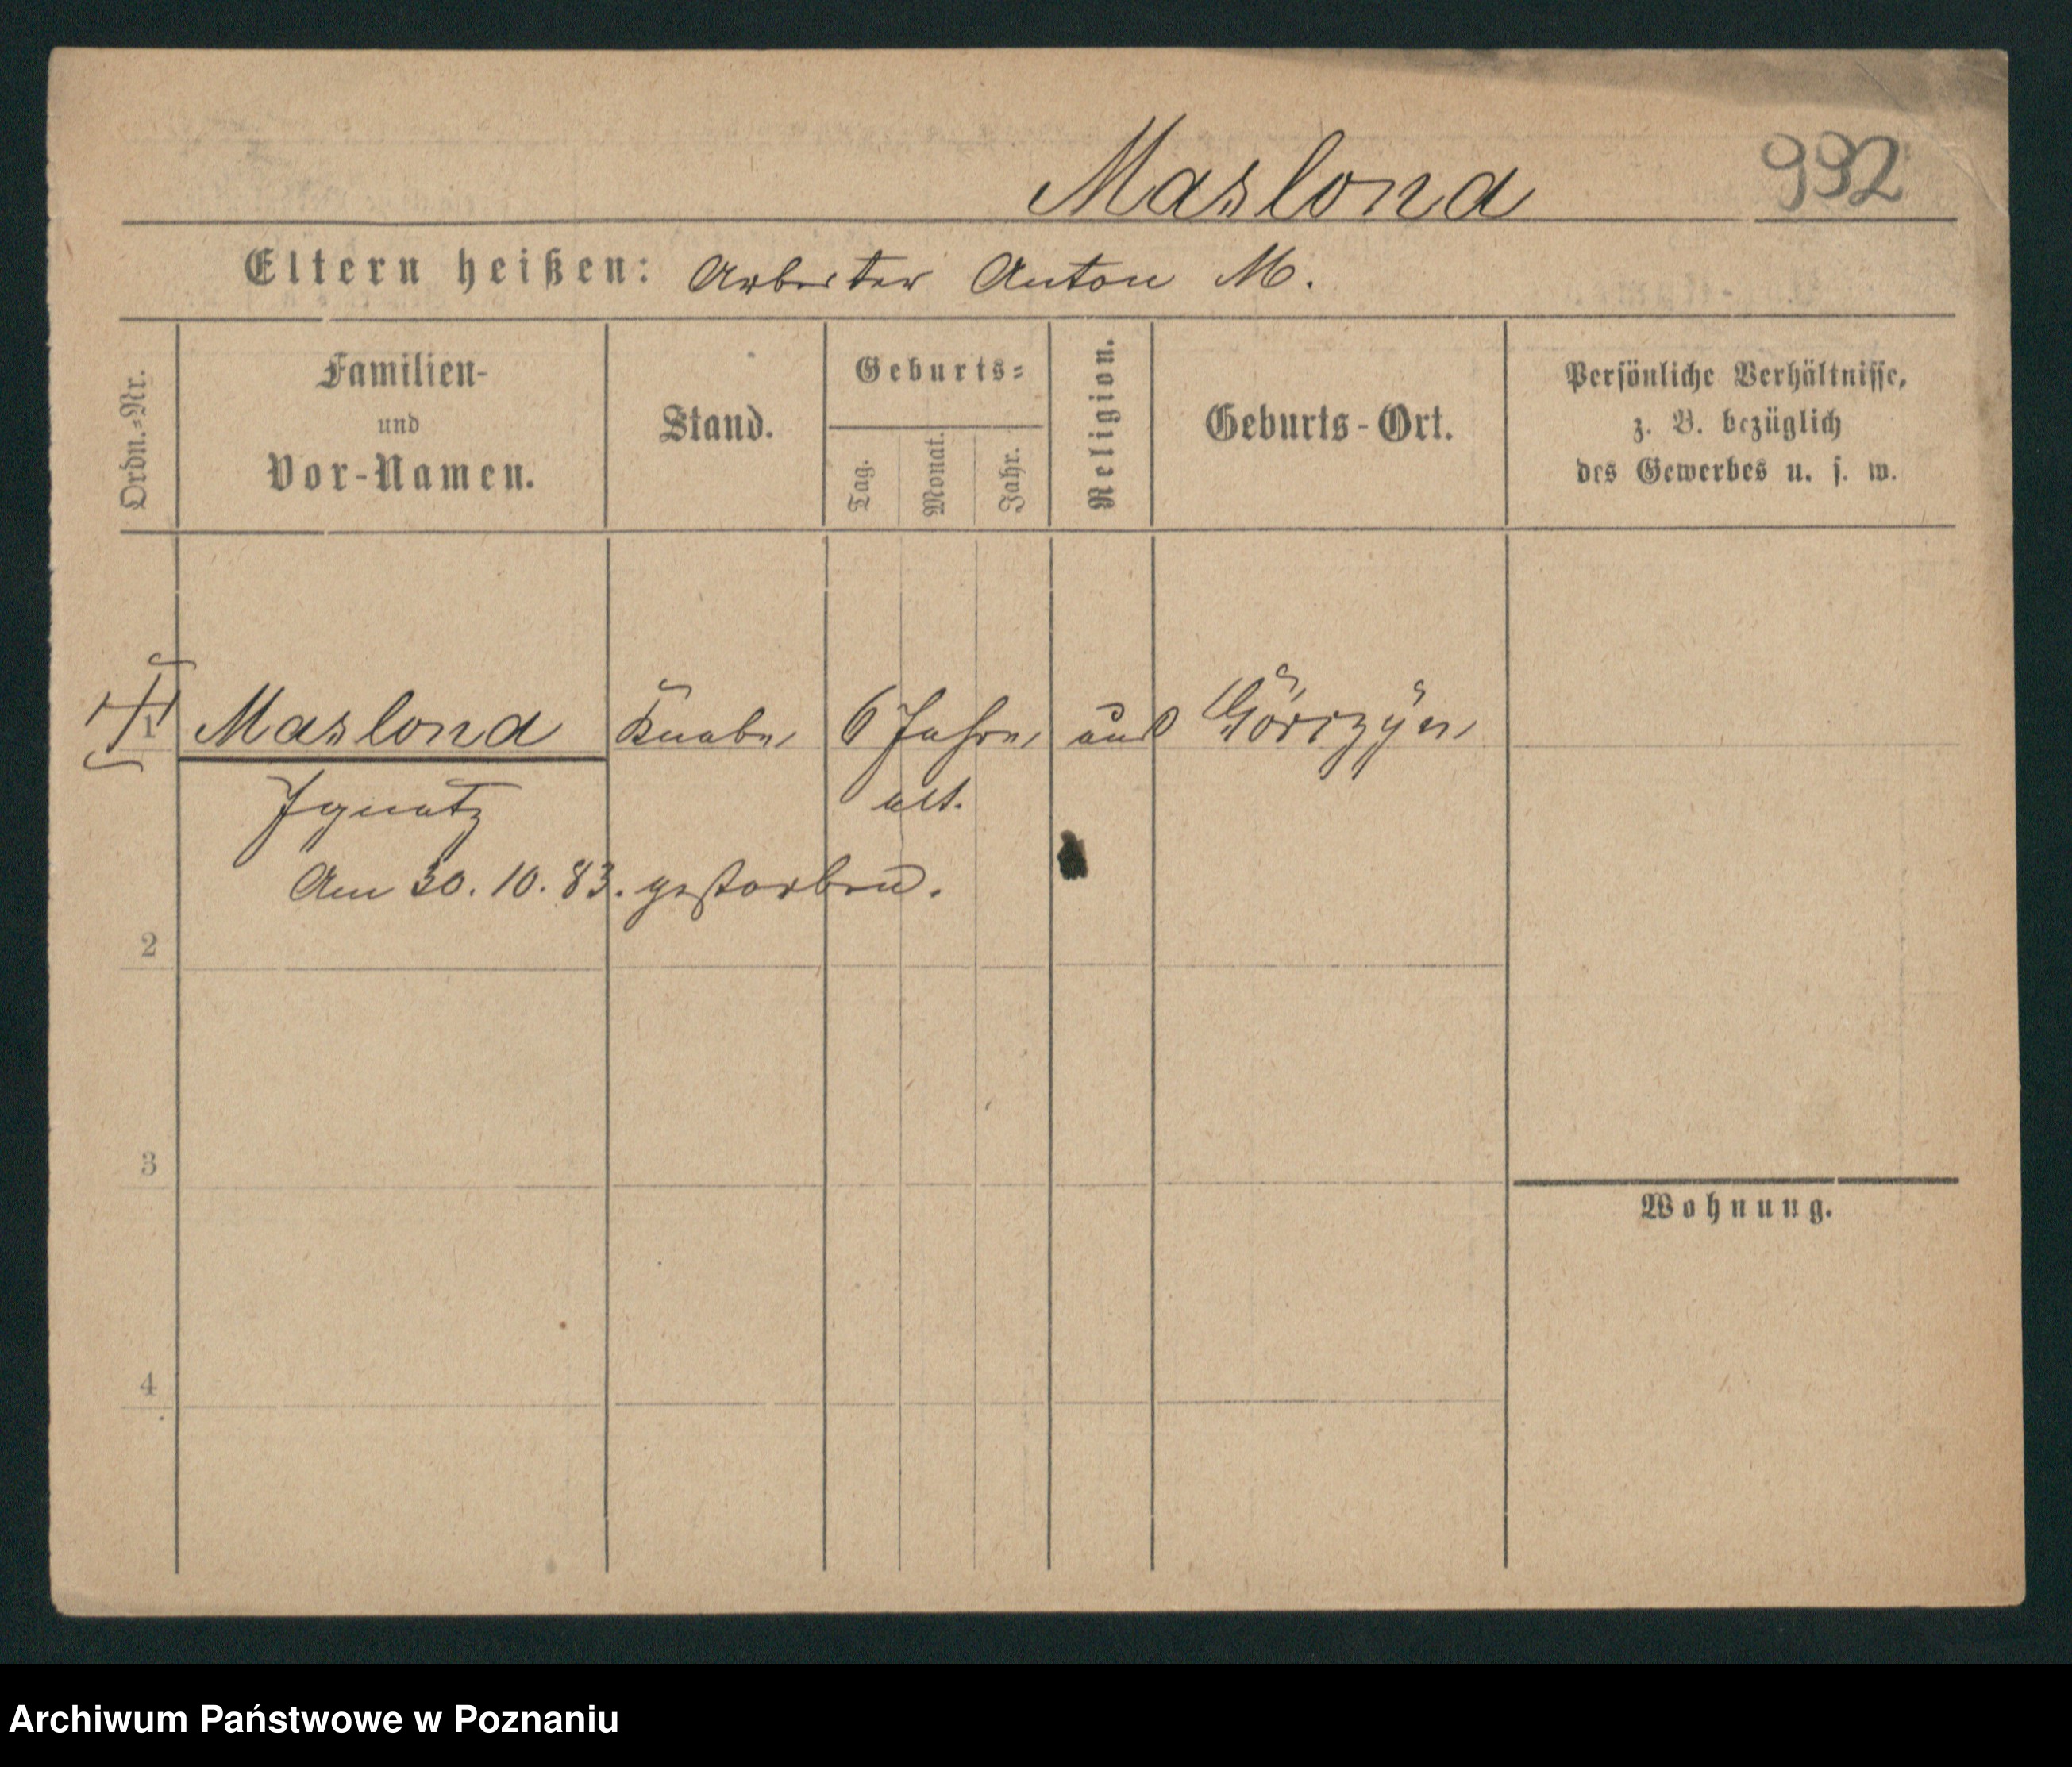 Maslond 992
Eltern heißen: Arbeiter Anton M.
Ordn.-Nr.
Familien-
und
Vor-Namen.
Stand.
Geburts-
Tag.
Monat.
Jahr.
Religion.
Geburts-Ort.
Persönliche Verhältnisse,
z. B. bezüglich
des Gewerbes u. s. w.
1 Maslond Knabe, 6 Jahre, aus Görczyn,
Ignatz alt.
Am 30. 10. 83. gestorben.
2
3
Wohnung.
4
Archiwum Państwowe w Poznaniu